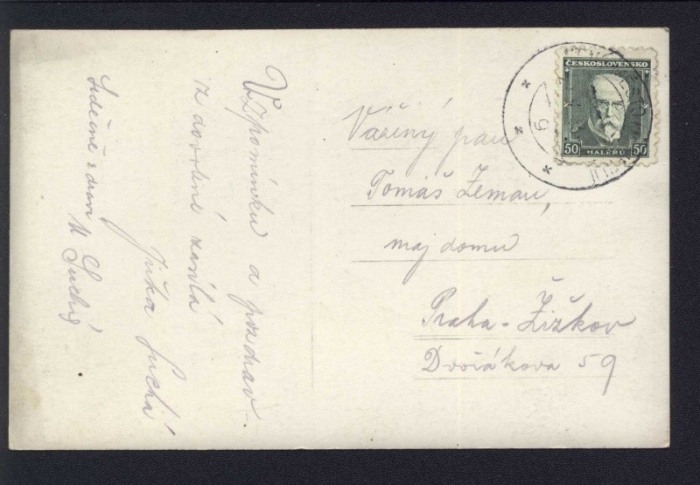 Vzpomínku a pozdrav
z dovolené zasílá
Jiřka Suchá
Srdečně zdraví
M Suchý
Vážený pan
Tomáš Zeman,
maj domu
Praha-Žižkov
Dvořákova 59
ČESKOSLOVENSKO
50 HALÉŘŮ 50